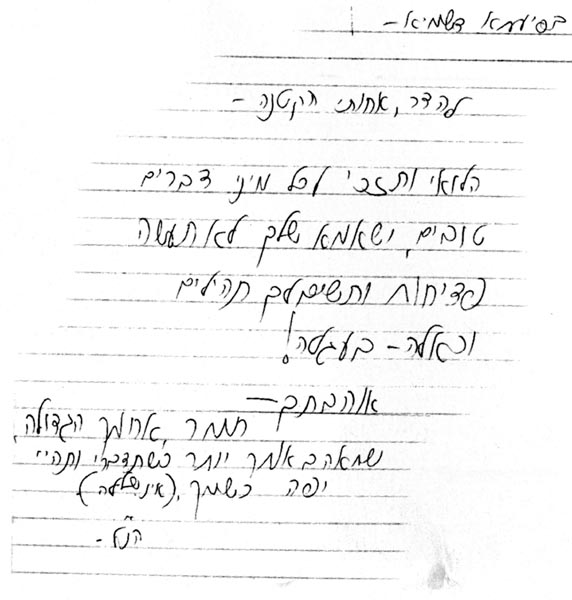 בסיעתא דשמיא-
להדר, אחותי הקטנה -
הלואי ותזכי לכל מיני דברים
טובים, ושאמא שלך לא תעשה
פדיחות ותשים לך תהילים
וכאלה - בעגלה!
אוהבתך-
תמר, אחותך הגדולה,
שתאהב אותך יותר כשתדברי ותהיי
יפה כשמך, (אינשאללה)
הנ"ל -